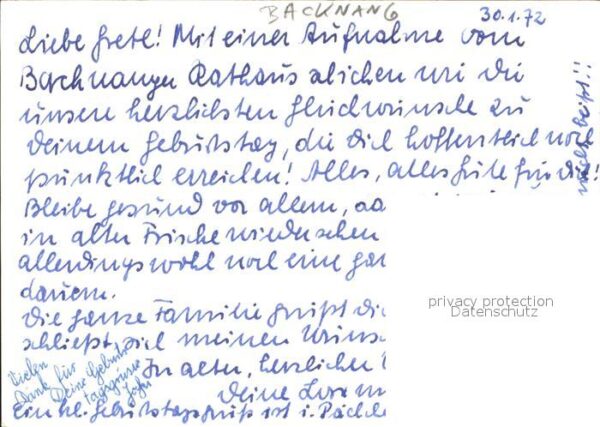 BACKNANG
30.1.72
Liebe Gretl! Mit einer Aufnahme vom
Backnanger Rathaus schicken wir dir
unsere herzlichsten Glückwünsche zu
Deinem Geburtstag, die Dich hoffentlich noch
pünktlich erreichen! Alles, alles Gute für die!
Bleibe gesund vor allem, da
in alter Frische wiedersehen
allerdings wohl noch eine gan
dauern.
Die ganze Familie grüßt dic
schließt sich meinen Wünsc
In alter, herzlicher
Deine Lore
Ein kl. Geburtstagsgruß ist i. Päckche
Vielen
Dank für
Deine Geburts-
tagsgrüsse
privacy protection
Datenschutz